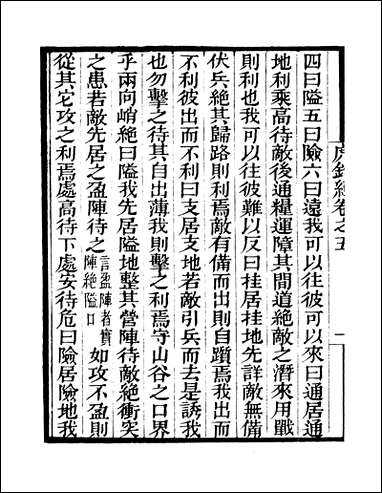 四曰隘五曰險六曰遠我可以往彼可以來曰通居通
地利乘高待敵後通糧運障其間道絶敵之潛來用戰
則利也我可以往彼難以反曰挂居挂地先詳敵無備
伏兵絶其歸路則利焉敵有備而出則自躓焉我出而
不利彼出而不利曰支居支地若敵引兵而去是誘我
也勿擊之待其自出薄我則擊之利焉守山谷之口界
乎兩向峭絶曰隘我先居隘地整其營陣待敵絶衝突
之患若敵先居之盈陣待之言盈陣者實陣絶隘口如攻不盈則
從其它攻之利焉處高待下處安待危曰險居險地我
虎鈐經卷之五
一